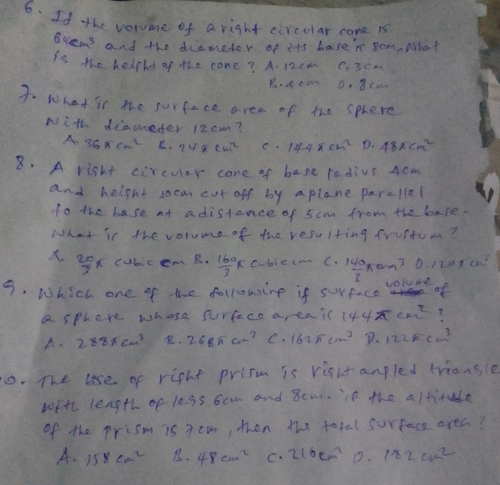 6. If the volume of a right circular cone is
64cm³ and the diameter of its base is 8cm, what
is the height of the cone? A. 12cm C. 3cm
B. 4cm D. 8cm
7. What is the surface area of the sphere
with diameter 12cm?
A. 36πcm² B. 24πcm² C. 144πcm² D. 48πcm²
8. A right circular cone of base radius 4cm
and height 10cm cut off by a plane parallel
to the base at a distance of 5cm from the base.
What is the volume of the resulting frustum?
A. 20/3 π cubic cm B. 160/3 π cubic cm C. 140/3 π cm³ D. 120πcm³
9. Which one of the following if surface volume of
a sphere whose surface area is 144π cm²?
A. 288πcm³ B. 268πcm³ C. 162πcm³ D. 122πcm³
10. The base of right prism is right angled triangle
with length of legs 6cm and 8cm. if the altitude
of the prism is 7cm, then the total surface area?
A. 158cm² B. 48cm² C. 216cm² D. 182cm²